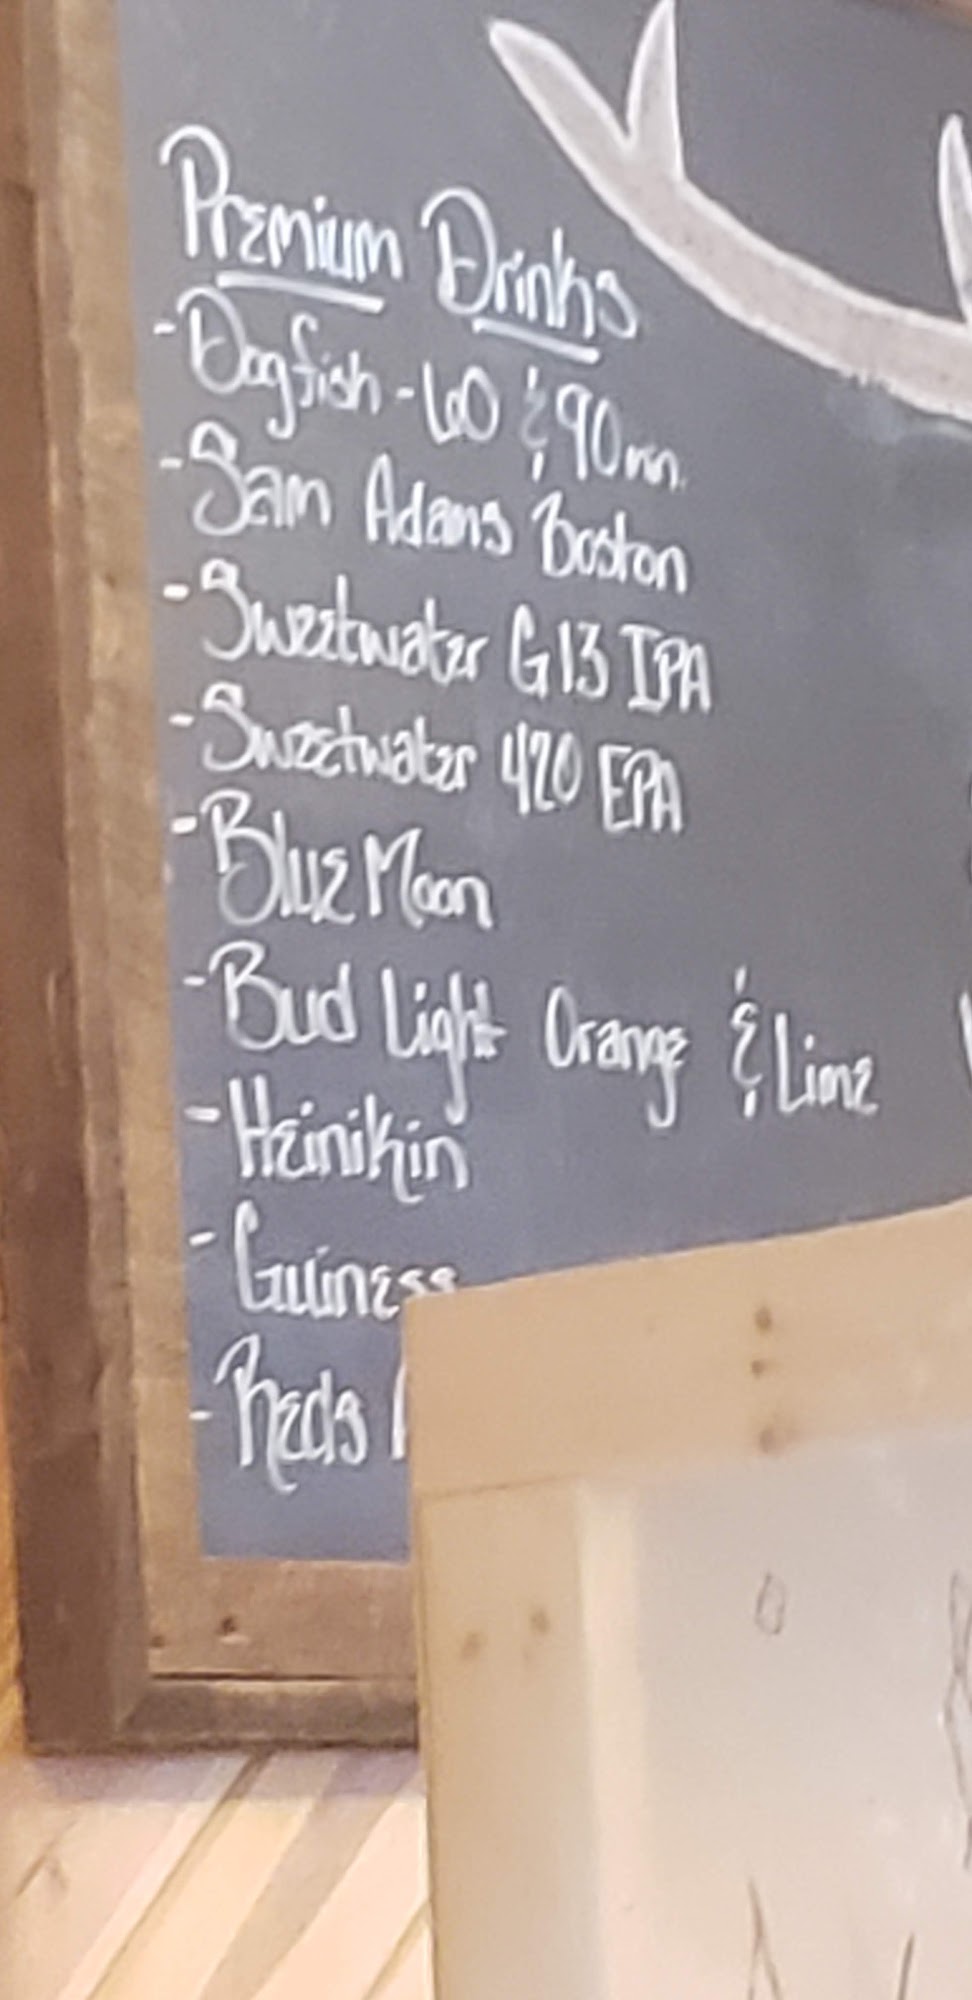 Premium Drinks
- Dogfish - 60 & 90 min.
- Sam Adams Boston
- Sweetwater G13 IPA
- Sweetwater 420 EPA
- Blue Moon
- Bud Light Orange & Lime
- Heinikin
- Guiness
- Reds